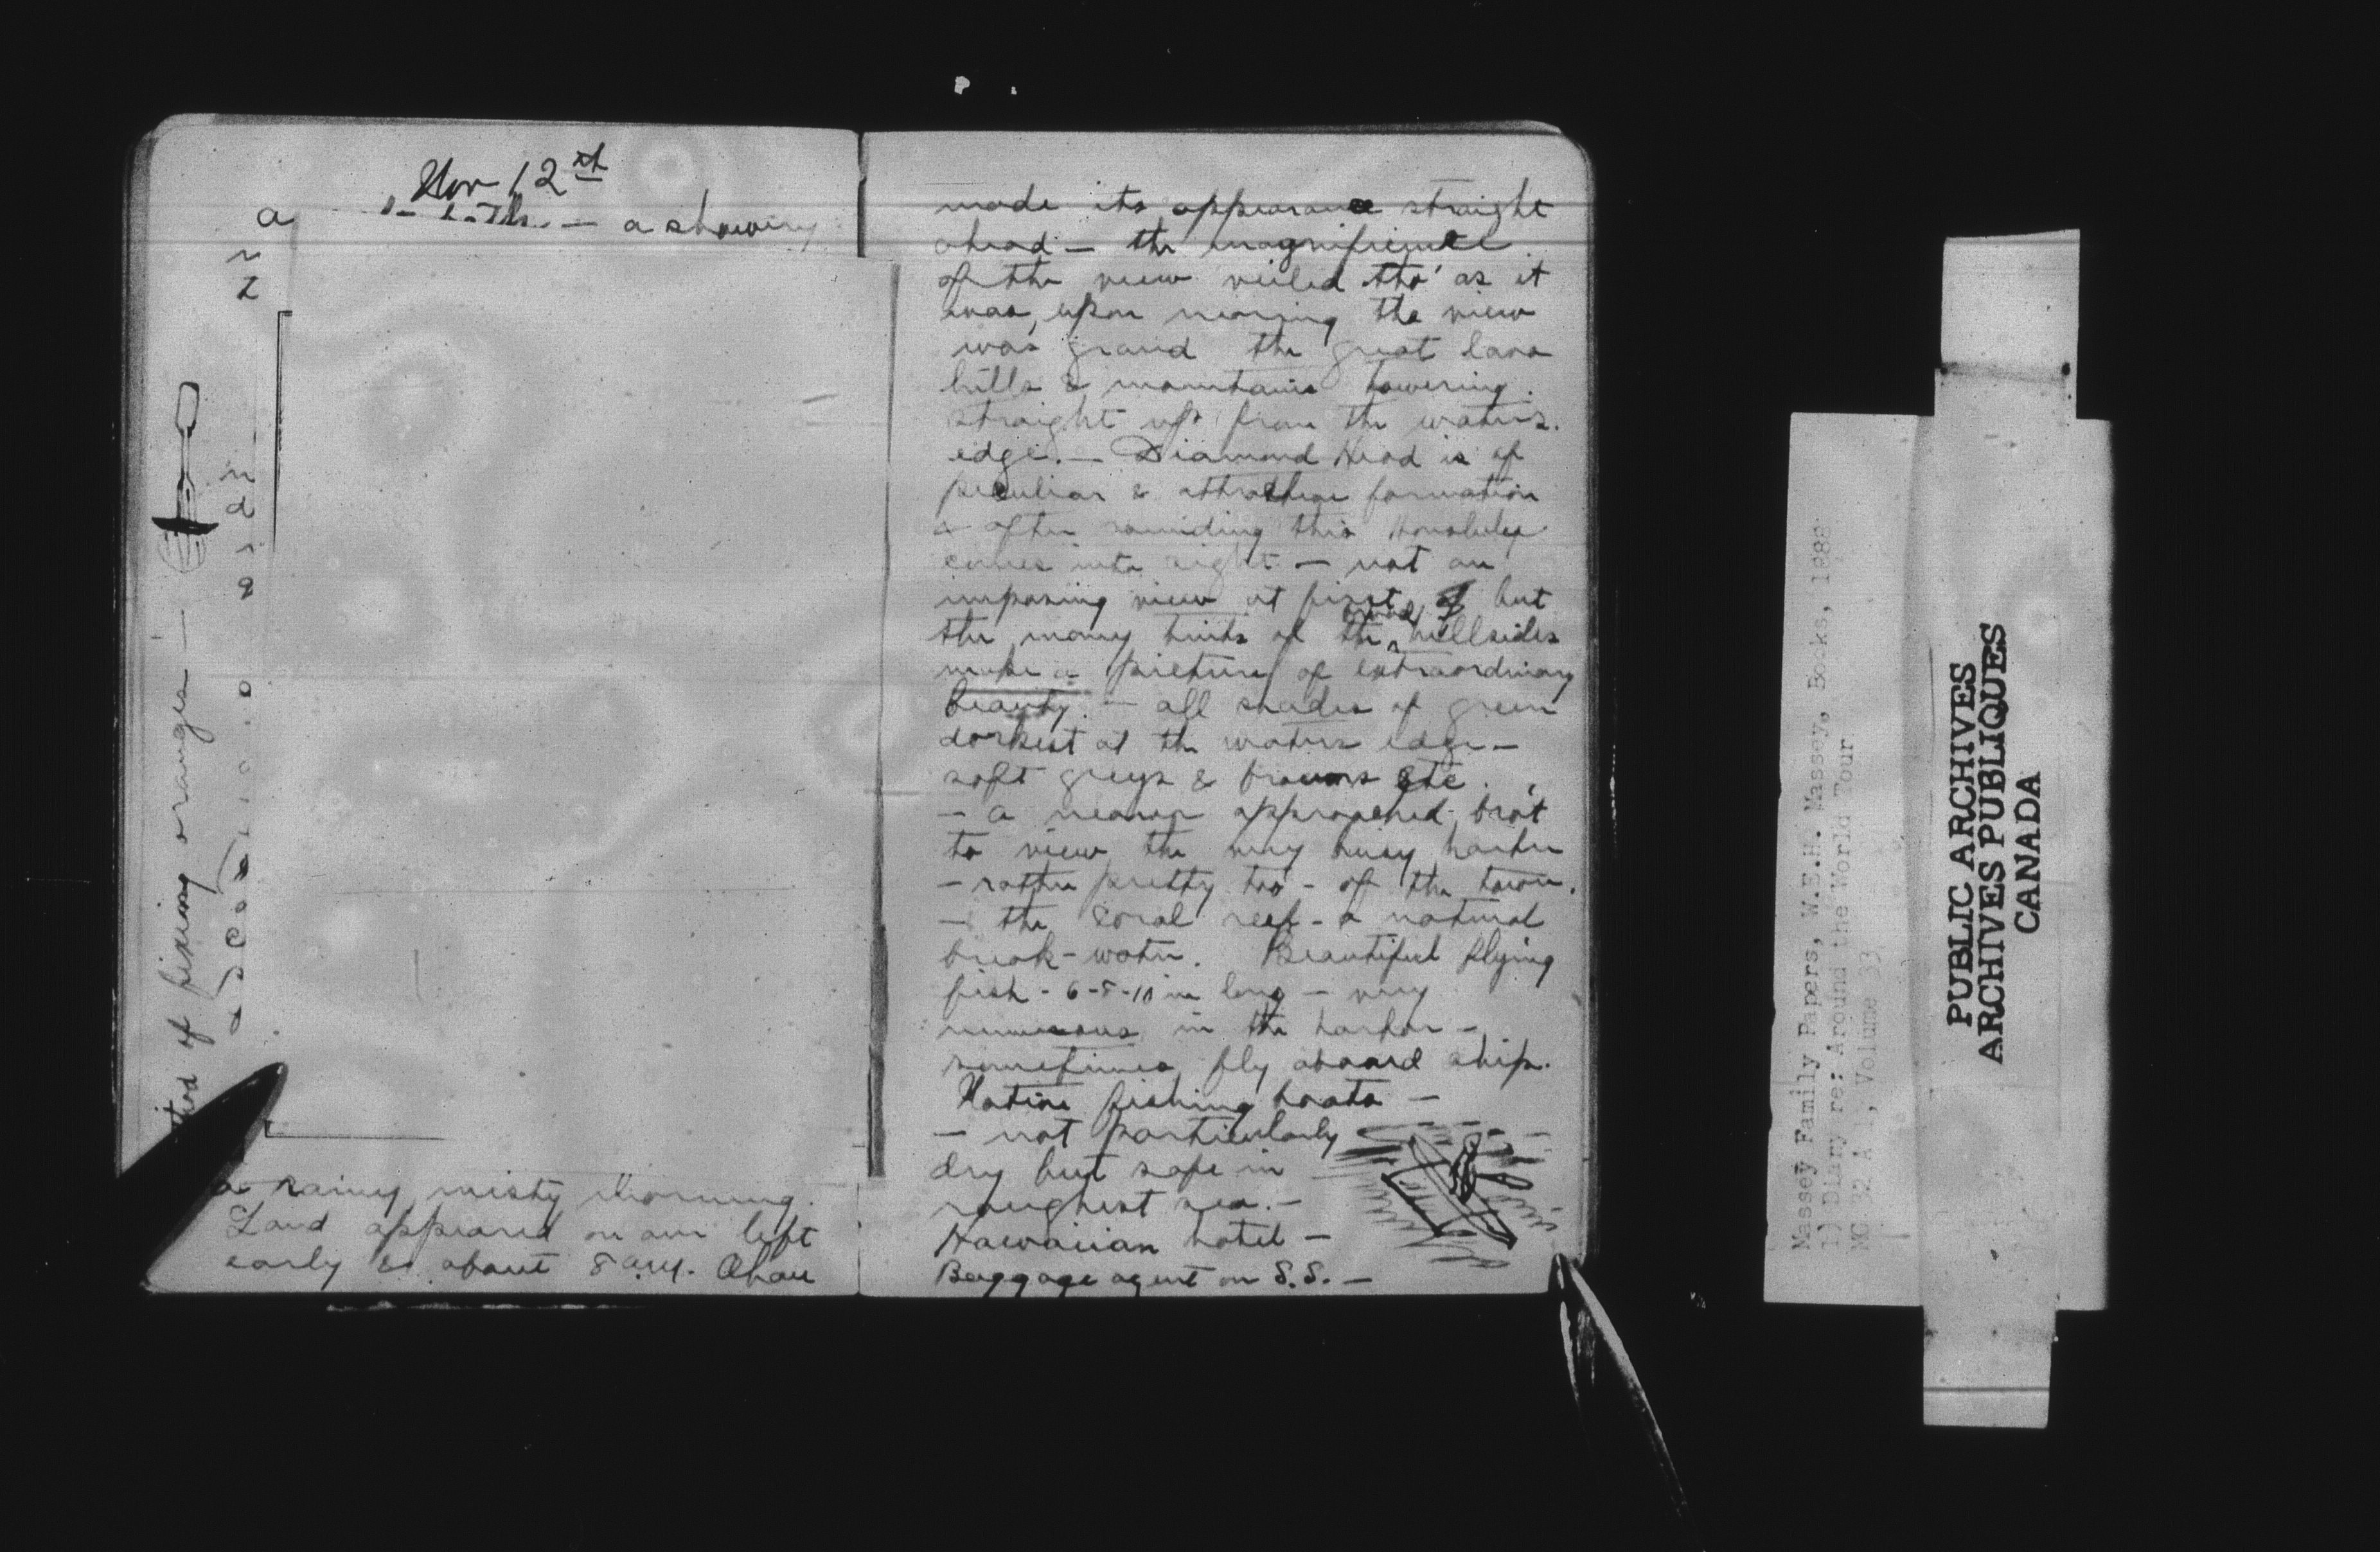 Nov 12th
a showery
fixing oranges —
a rainy misty morning.
Land appeared on our left
early & about 8 a.m. Ohau
made its appearance straight
ahead — the magnificence
of the view veiled tho' as it
was, upon nearing the view
was grand the great lava
hills & mountains towering
straight up from the waters
edge. — Diamond Head is of
peculiar & attractive formation
& after rounding this Honolulu
comes into sight — not an
imposing view at first but
the many tints of the hillsides
make a picture of extraordinary
beauty. — all shades of green
darkest at the waters edge —
soft greys & browns etc.
— a nearer approached bro't
to view the very busy harbor
— rather pretty too - of the town.
— the coral reef - a natural
break-water. Beautiful flying
fish - 6-8-10 in long — very
numerous in the harbor —
sometimes fly aboard ship.
Native fishing boats —
— not particularly
dry but safe in
roughest sea. —
Hawaiian hotel —
Baggage agent on S.S. —
Massey Family Papers, W.E.H. Massey, Books, 1888
1) Diary re: Around the World Tour
MG 32 A 1, Volume 33
PUBLIC ARCHIVES
ARCHIVES PUBLIQUES
CANADA